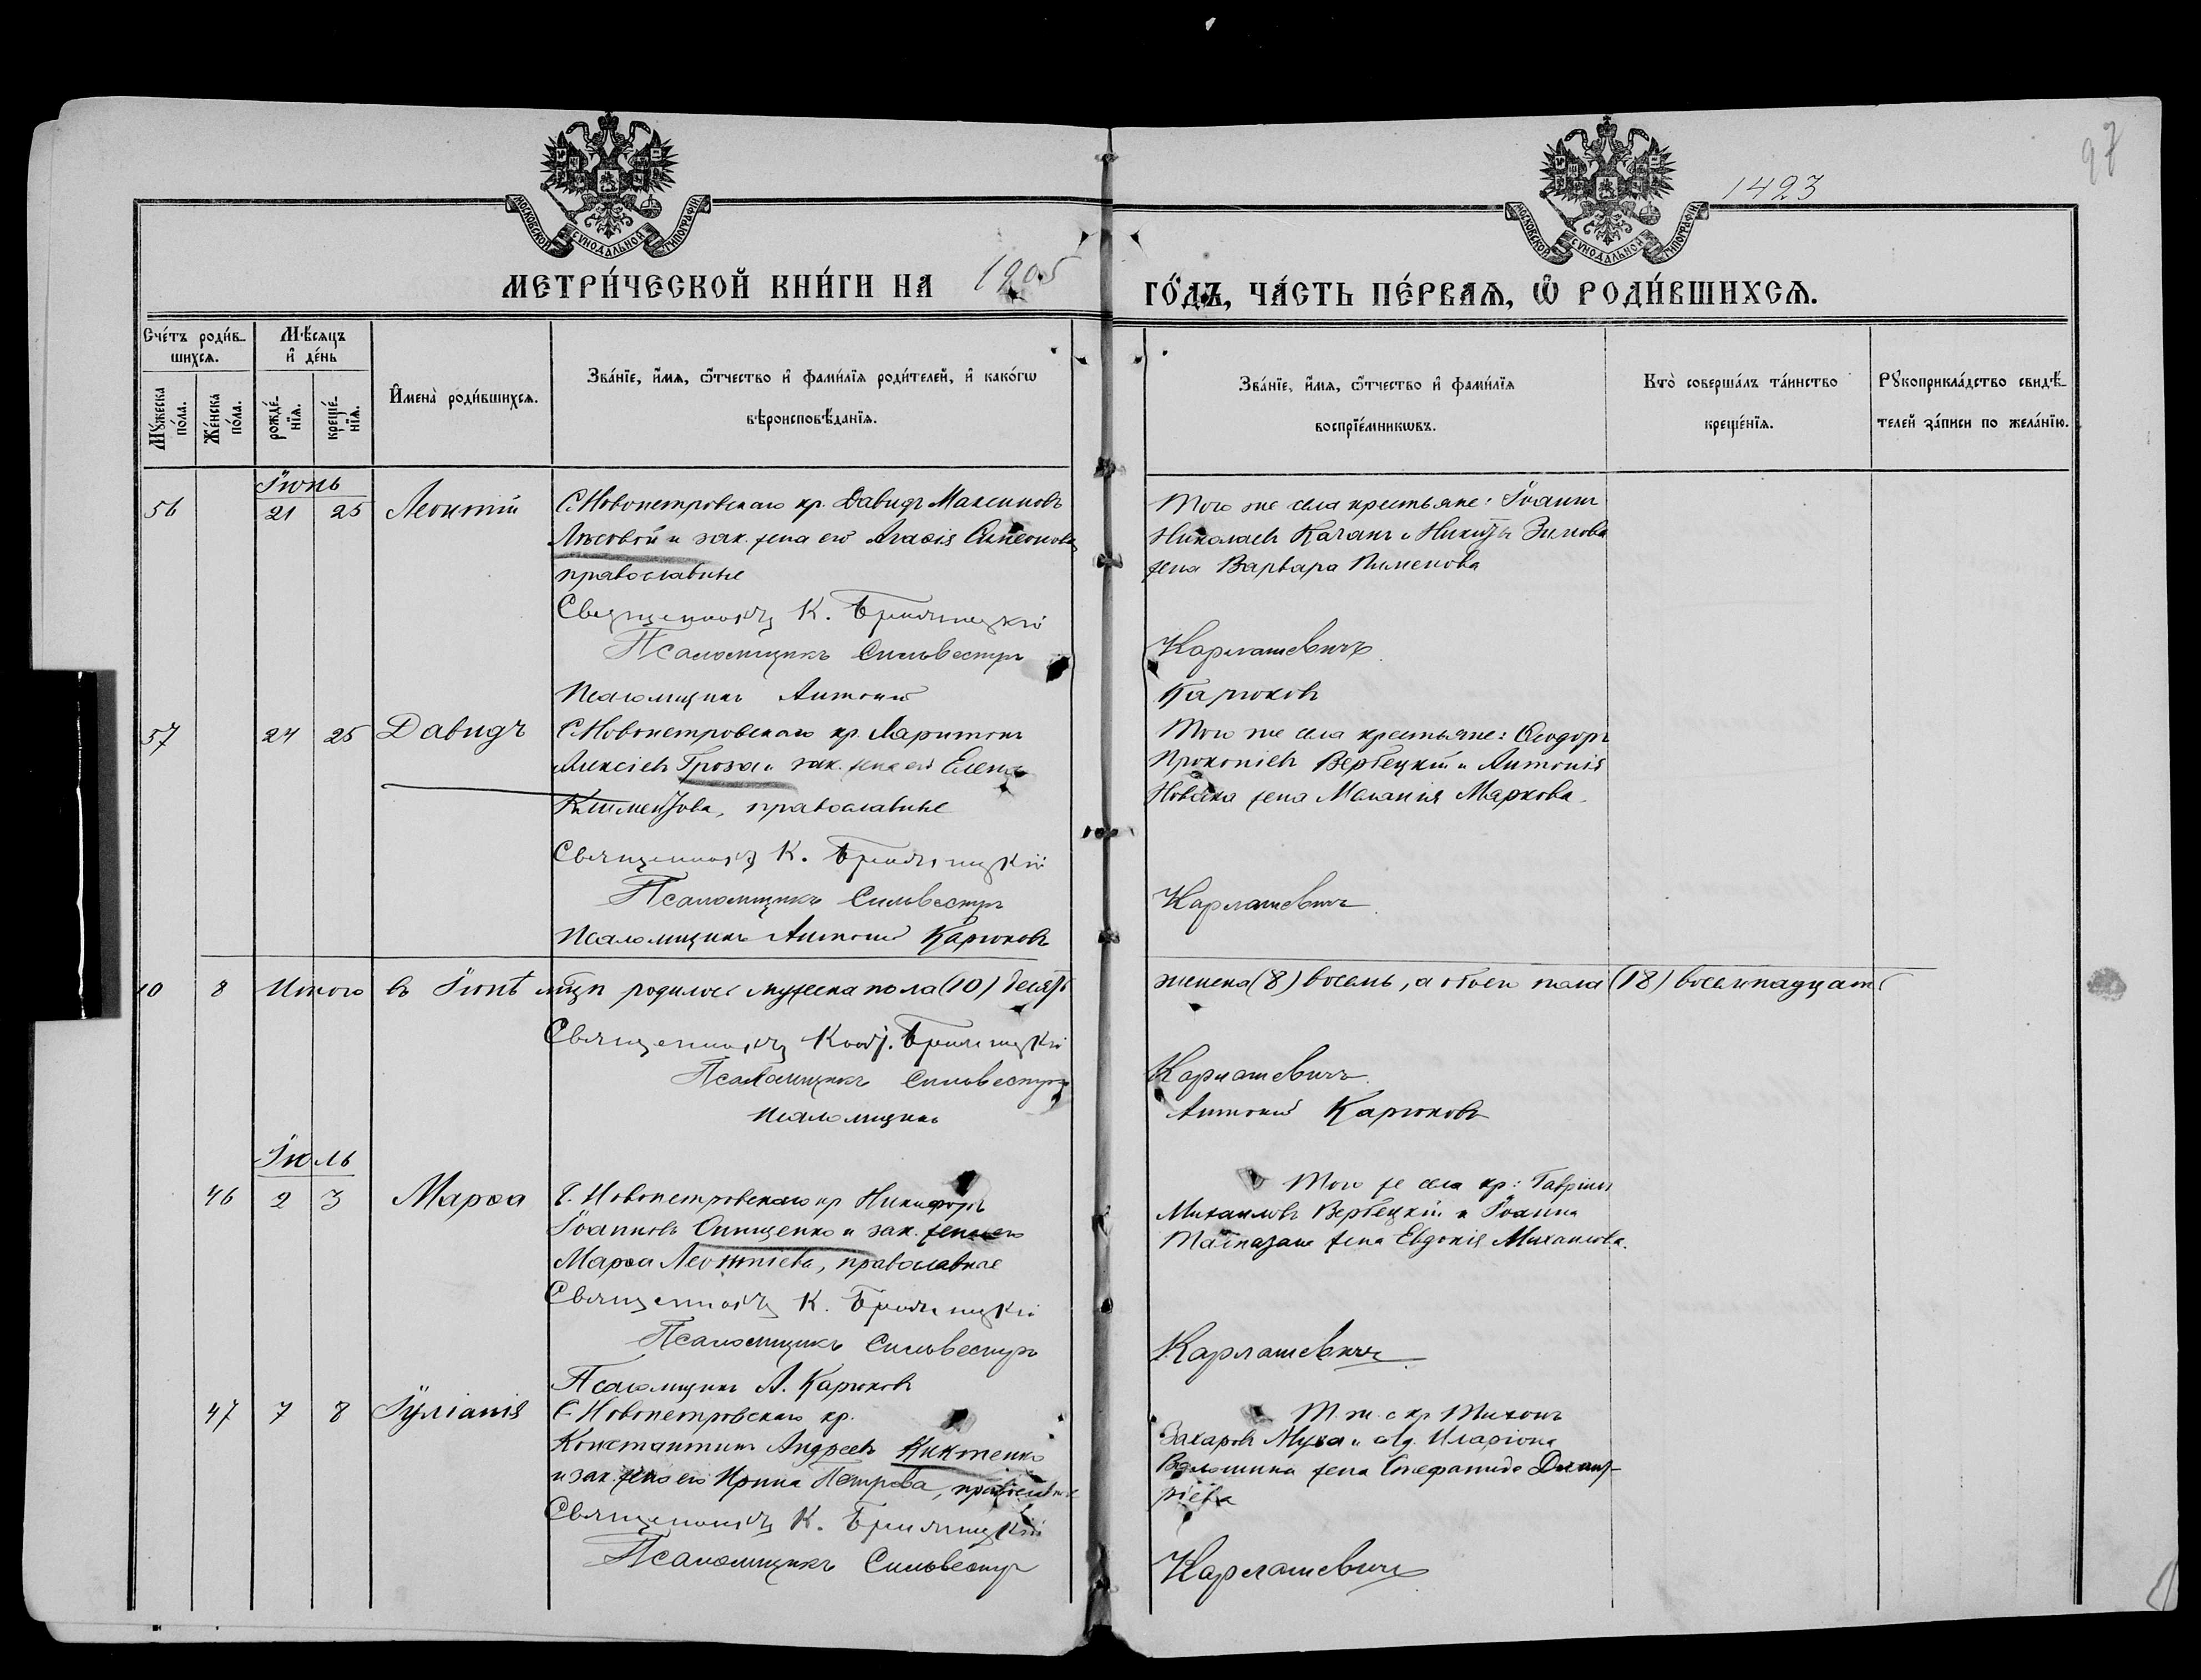 97
1423
МОСКОВСКОЙ СѴНОДАЛЬНОЙ ТИПОГРАФІИ
МОСКОВСКОЙ СѴНОДАЛЬНОЙ ТИПОГРАФІИ
МЕТРИ́ЧЕСКОЙ КНИ́ГИ НА 1905 ГО́ДЪ, ЧА́СТЬ ПЕ́РВАѦ, Ѡ РОДИ́ВШИХСѦ.
Сче́тъ роди́в-
шихсѧ.
Мꙋ́жеска по́ла.
Же́нска по́ла.
Мѣ́сѧцъ
и҆ де́нь
рожде́-
нїѧ.
креще́-
нїѧ.
И҆мена̀ роди́вшихсѧ.
Зва́нїе, и҆́мѧ, ѻ҆́тчество и҆ фами́лїѧ роди́телей, и҆ како́гѡ
вѣроисповѣ́данїѧ.
Зва́нїе, и҆́мѧ, ѻ҆́тчество и҆ фами́лїѧ
воспрїе́мникѡвъ.
Кто̀ соверша́лъ та́инство
креще́нїѧ.
Рꙋкоприкла́дство свидѣ́-
телей за́писи по жела́нїю.
Іюнь
56 21 25 Леонтій С. Новопетровскаго кр. Давидъ Максимовъ
Лѣсовой и зак. жена его Агаѳія Симеонова
православные
Священникъ К.
Псаломщикъ Сильвестръ
Псаломщикъ Антоній
Того же села крестьяне: Іоаннъ
Николаевъ Качанъ и Никиты Зимова
жена Варвара Пименова
Карлашевичъ
Карюковъ
57 24 25 Давидъ С. Новопетровскаго кр. Харитонъ
Алексіевъ Гроза и зак. жена его Елена
Климентова, православные
Священникъ К.
Псаломщикъ Сильвестръ
Псаломщикъ Антоній Карюковъ
Того же села крестьяне: Ѳеодоръ
Прокопіевъ Вербецкій и Антонія
Новака жена Меланія Маркова.
Карлашевичъ
10 8 Итого въ Іюнѣ мцѣ родилось мужеска пола (10) десять
женска (8) восемь, а обоего пола (18) восемнадцать
Священникъ
Псаломщикъ Сильвестръ
Псаломщикъ
Карлашевичъ
Антоній Карюковъ
Іюль
46 2 3 Марѳа С. Новопетровскаго кр Никифоръ
Іоанновъ Онищенко и зак. жена его
Марѳа Леонтіева, православные
Священникъ К.
Псаломщикъ Сильвестръ
Псаломщикъ А. Карюковъ
Того же села кр: Гавріилъ
Михаиловъ Вербецкій и Іоанна
жена Евдокія Михаилова.
Карлашевичъ
47 7 8 Іуліанія С. Новопетровскаго кр.
Константинъ Андреевъ Никтенко
и зак. жена его Ирина Петрова, православные
Священникъ К.
Псаломщикъ Сильвестръ
Т. ж. с кр Тихонъ
Захаровъ Муха и Иларіона
Волошина жена Димит-
ріева
Карлашевичъ